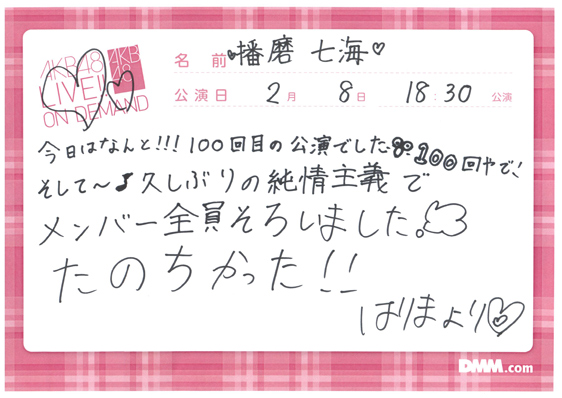 AKB48
LIVE!!
ON DEMAND
AKB
48
名前 播磨 七海♡
公演日 2月 8日 18:30 公演
今日はなんと!!!100回目の公演でした 100回やで!
そして〜♪久しぶりの純情主義で
メンバー全員そろしました。
たのちかった!!
はりまより♡
DMM.com